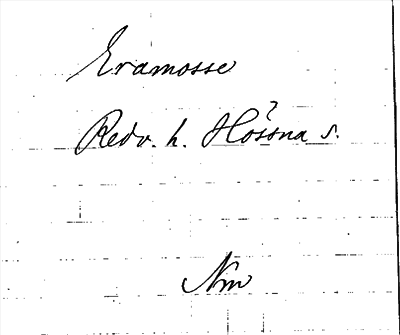 Eramosse
Redv. h. Hössna s.
Nm